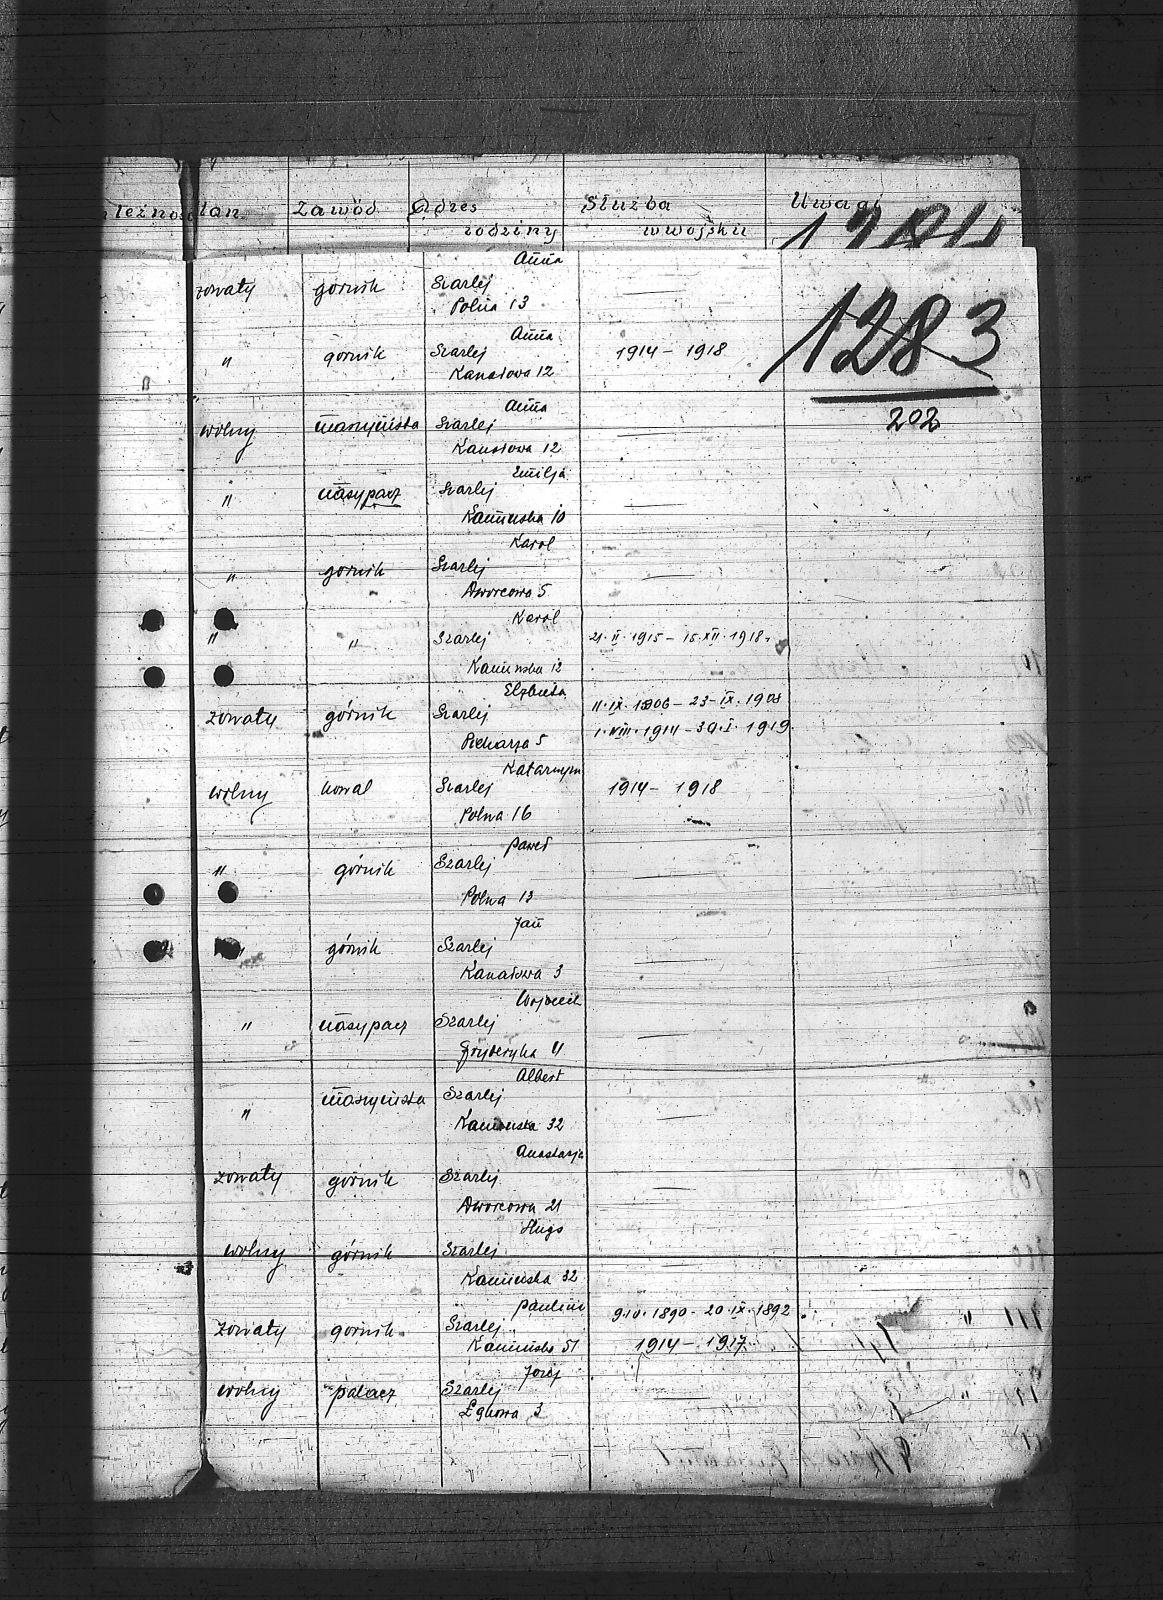 leżność stan. Zawód Adres rodziny Służba w wojsku Uwagi
1283
202
Anna
żonaty górnik Szarlej —
Polna 13
Anna
" górnik Szarlej 1914 - 1918
Kanałowa 12
Anna
wolny maszynista Szarlej —
Kanałowa 12
Emilja
" nasypacz Szarlej —
Kamińska 10
Karol
" górnik Szarlej —
Dworcowa 5
Karol
" " Szarlej 21. II. 1915 - 15. XII. 1918.
Kamińska 12
Elżbieta
11. IX. 1906 - 23. IX. 1908
żonaty górnik Szarlej
1. VIII. 1914 - 30. I. 1919.
Piekarza 5
Katarzyna
wolny kowal Szarlej 1914 - 1918
Polna 16
Paweł
" górnik Szarlej —
Polna 13
Jan
" górnik Szarlej —
Kanałowa 3
Wojciech
" nasypacz Szarlej —
Fryderyka 11
Albert
" maszynista Szarlej —
Kamińska 32
Anastazja
żonaty górnik Szarlej —
Dworcowa 21
Hugo
wolny górnik Szarlej —
Kamińska 32
Paulina
9. IV. 1890 - 20. IX. 1892
żonaty górnik Szarlej
Kamińska 51 1914 - 1917.
Józef
wolny palacz Szarlej —
Łąkowa 3